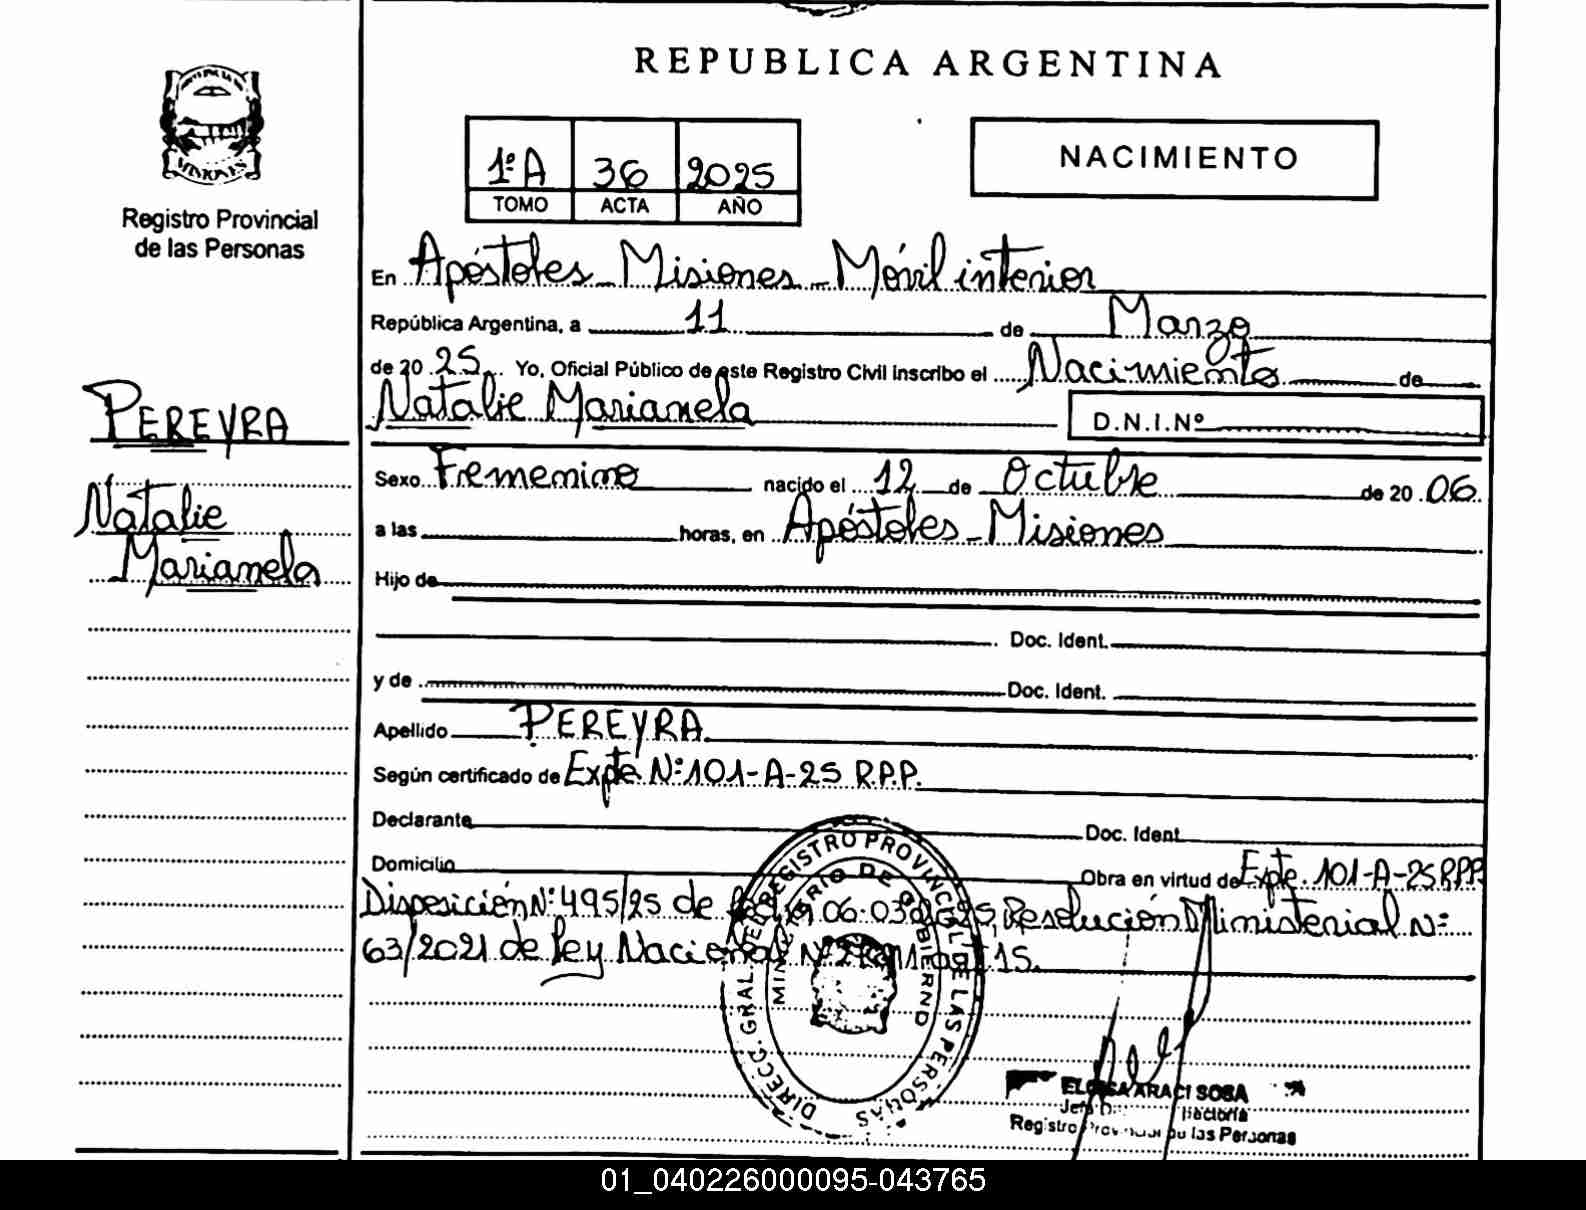 REPUBLICA ARGENTINA
MISIONES
Registro Provincial
de las Personas
1ºA 36 2025
TOMO ACTA AÑO
NACIMIENTO
En Apóstoles - Misiones - Móvil interior
República Argentina, a 11 de Marzo
de 20 25. Yo, Oficial Público de este Registro Civil inscribo el Nacimiento de
Natalie Marianela D.N.I.Nº
PEREYRA
Natalie
Marianela
Sexo Femenino nacido el 12 de Octubre de 20 06.
a las horas, en Apóstoles - Misiones
Hijo de
Doc. Ident.
y de Doc. Ident.
Apellido PEREYRA
Según certificado de Expte Nº101-A-25 R.P.P.
Declarante Doc. Ident
Domicilio Obra en virtud de Expte. 101-A-25 RPP
Disposición Nº 495/25 de 06-03-2025, Resolución Ministerial Nº
63/2021 de Ley Nacional Nº 15.
DIRECC. GRAL. DEL REGISTRO PROVINCIAL DE LAS PERSONAS
MINISTERIO DE GOBIERNO
ELOISA ARACI SOSA
Registro Provincial de las Personas
01_040226000095-043765